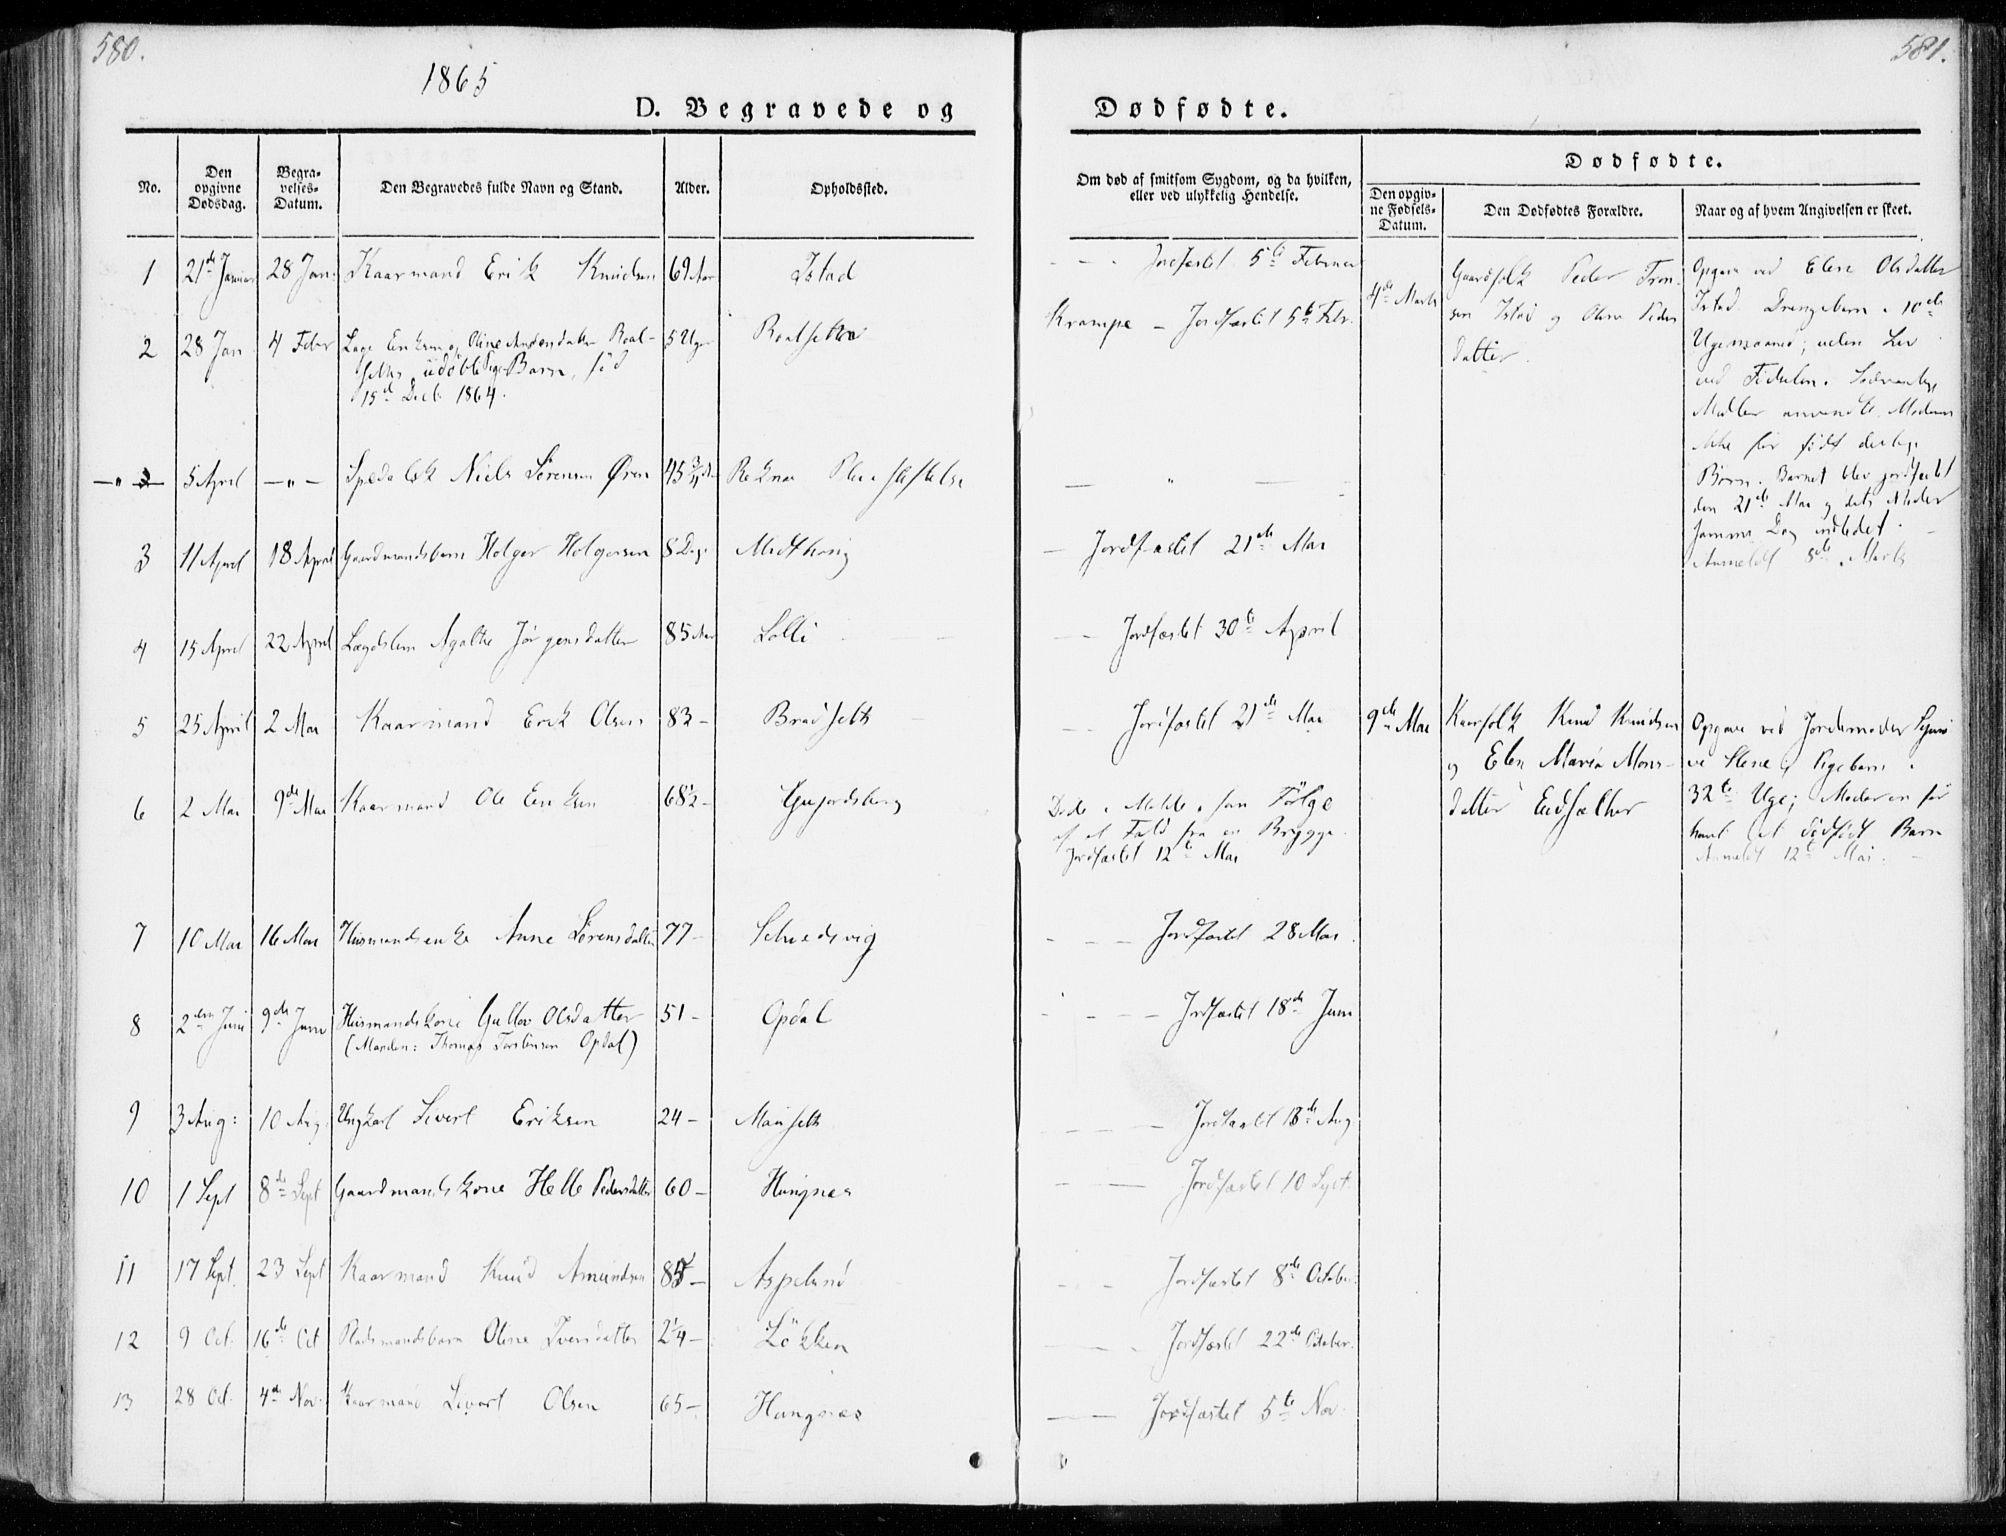 580.
1865
D. Begravede og
No.
Den opgivne Dødsdag.
Begravelses-Datum.
Den Begravedes fulde Navn og Stand.
Alder.
Opholdssted.
1 21de Januar 28 Jan: Kaarmand Erik Knudsen 69 Aar Istad
2 28 Jan 4 Febr Lage Eriksen og Oline Andersdatter Roal- 5 Uger Roalsetter
setters udøbte Pige Barn, fød
15de Decb 1864.
-"- 5 April -"- Spedalsk Niels Sørensen Øren 45 3/4 Aar Reknæs Pleiestiftelse
3 11 April 18 April Gaardmandsbarn Holger Holgersen 8 Dage Midthoug
4 15 April 22 April Lægdslem Agathe Jørgensdatter 85 Aar Lolli
5 25 April 2 Mai Kaarmand Erik Olsen 83 - Bradseth
6 2 Mai 9de Mai Kaarmand Ole Eriksen 68½ - Gujordsberg
7 10 Mai 16 Mai Huusmandsenke Anne Sørensdatter 77 -
8 2den Juni 9de Juni Huusmandskone Gullov Olsdatter 51 - Opdal
(Manden: Thomas Torstensen Opdal)
9 3 Aug: 10 Aug: Ungkarl Sivert Eriksen 24 - Mauseth
10 1 Sept 8de Sept Gaardmandskone Helle Pedersdatter 60 - Hungnes
11 17 Sept. 23 Sept Kaarmand Knud Amundsen 85 - Aspelund
12 9 Oct. 16de Oct Pladsmandsbarn Oline Iversdatter 2¼ - Løkken
13 28 Oct. 4de Nov. Kaarmand Sivert Olsen 65 - Hungnes
581.
Dødfødte.
Om død af smitsom Sygdom, og da hvilken,
eller ved ulykkelig Hendelse.
Dødfødte.
Den opgivne Fødsels-Datum.
Den Dødfødtes Forældre.
Naar og af hvem Angivelsen er skeet.
- - - Jordfæstet 5te Februar
Krampe - Jordfæstet 5te Febr.
- " -
- Jordfæstet 21de Mai
- - Jordfæstet 30te April
- - Jordfæstet 21de Mai
Døde i Molde i som Følge
af et Fald fra en Brygge.
Jordfæstet 12te Mai
- - - Jordfæstet 28 Mai.
- - - Jordfæstet 18de Juni
- - - Jordfæstet 18de Aug
- - Jordfæstet 10 Sept.
- - Jordfæstet 8de October.
- - - Jordfæstet 22de October.
- - Jordfæstet 5te Nov.
4de Marts
Gaardfolk Peder Tron-
sen Istad og Oline Peders
datter.
Opgave ved Elen Olsdatter
Istad. Drengebarn i 10de
Ugemaaned; uden Liv
ved Fødselen. Sædvanlige
Midler anvendte. Moderen
ikke før født deslige
Børn. Barnet blev jordfæstet
den 21de Mai og dets Moder
samme Dag indledet.
Anmeldt 8de Marts
9de Mai
Kaarfolk Knud Knudsen
og Elen Maria Mons-
datter Eidsæther
Opgave ved Jordemoder
Pigebarn i
32te Uge; Moderen før
havt et dødfødt Barn
Anmeldt 12te Mai.